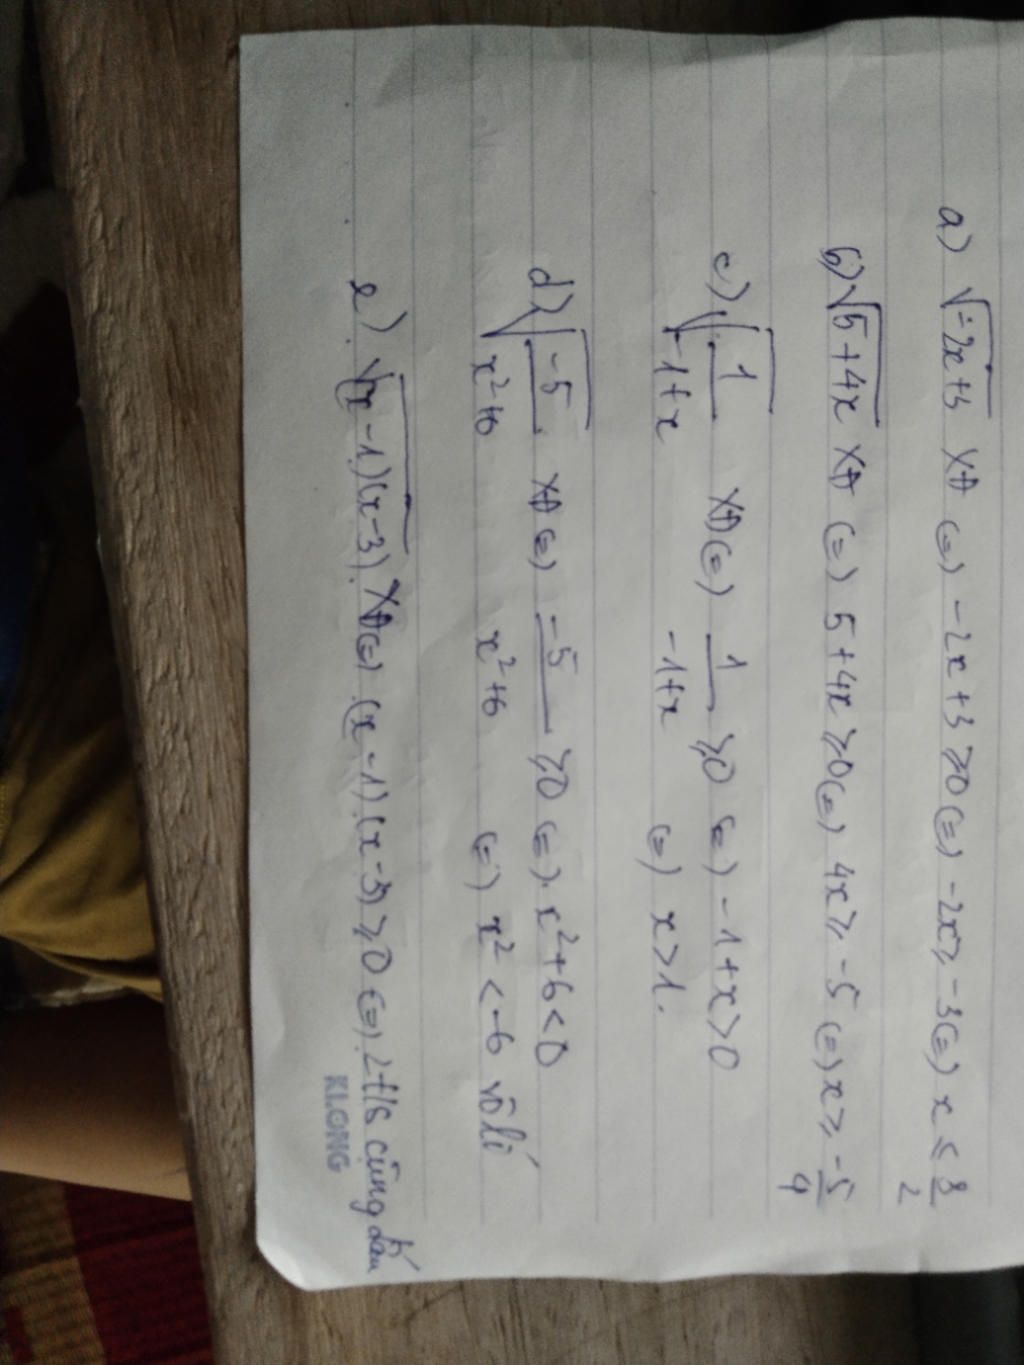 a) √-2x+3 XĐ (=) -2x+3 ≥0 (=) -2x ≥ -3 (=) x ≤ 3/2
b) √5+4x XĐ (=) 5+4x ≥0 (=) 4x ≥ -5 (=) x ≥ -5/4
c) √1/-1+x XĐ (=) 1/-1+x ≥0 (=) -1+x>0
(=) x>1.
d) √-5/x²+6 XĐ (=) -5/x²+6 ≥0 (=) x²+6<0
(=) x² < -6 vô lí
e) √(x-1)(x-3) XĐ (=) (x-1)(x-3) ≥0 (=) 2 t/s cùng dấu
KLONG